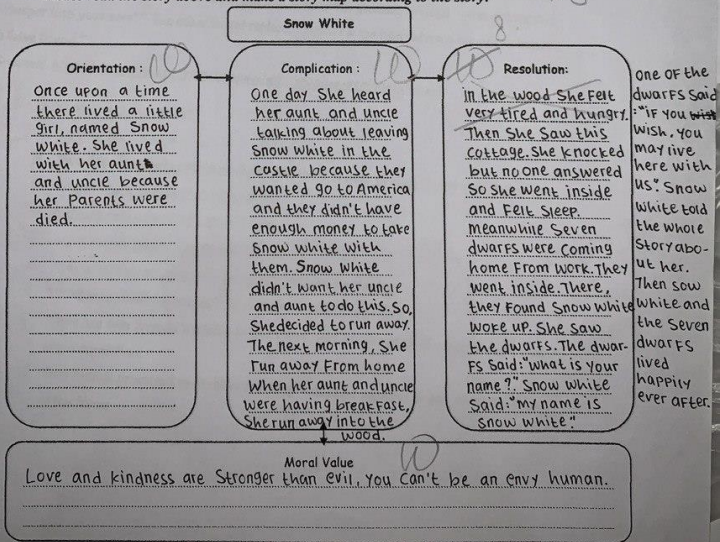 Snow White
8
Orientation :
10
Once upon a time
there lived a little
girl, named Snow
White. She lived
with her aunt
and uncle because
her Parents were
died.
Complication :
10
One day She heard
her aunt and uncle
talking about leaving
Snow white in the
castle because they
wanted go to America
and they didn't have
enough money to take
Snow white with
them. Snow White
didn't want her uncle
and aunt to do this. So,
She decided to run away.
The next morning, She
run away From home
When her aunt and uncle
were having breakfast,
She run away into the
wood.
Resolution:
10
in the wood She Felt
very tired and hungry.
Then She Saw this
cottage. She knocked
but no one answered
So She went inside
and Felt Sleep.
meanwhile Seven
dwarfs were Coming
home From work. They
went inside. There,
they Found Snow White
woke up. She saw
the dwarfs. The dwar-
Fs Said: "what is your
name ?" Snow white
Said: "my name is
Snow white."
One OF the
dwarfs Said
: "iF you wist
wish, you
may live
here with
us". Snow
White told
the whole
Story abo-
ut her.
Then sow
white and
the Seven
dwarfs
lived
happily
ever after.
Moral Value
10
Love and kindness are Stronger than evil, you Can't be an envy human.